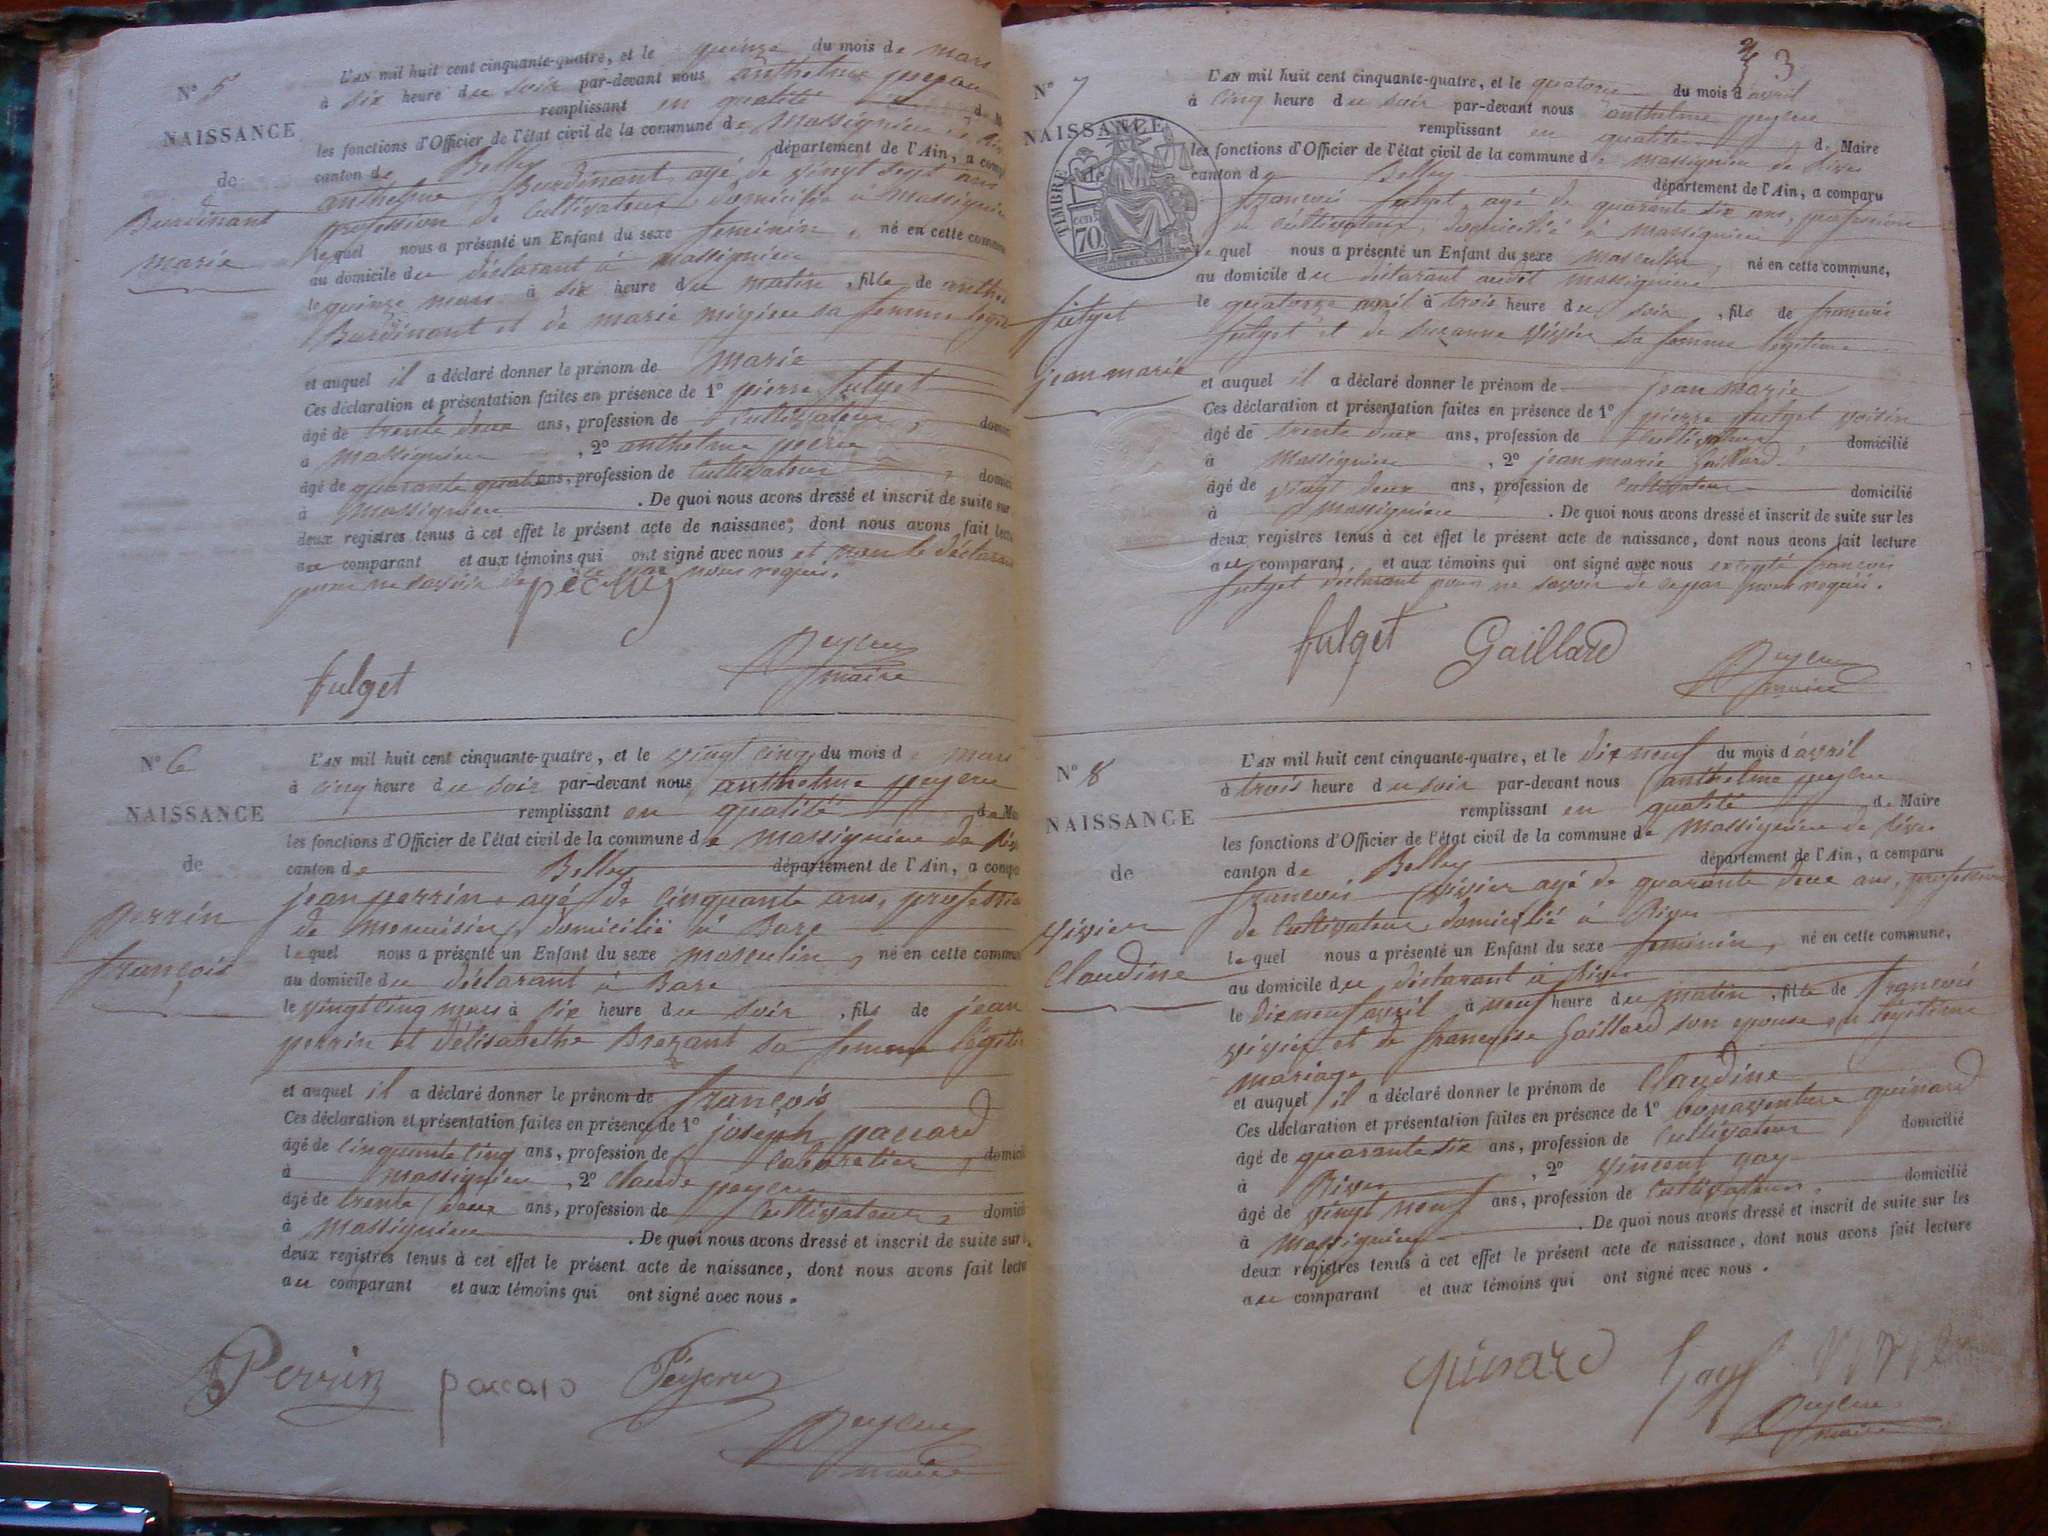 N° 5
NAISSANCE
de
Burdinant
marie
L'AN mil huit cent cinquante-quatre, et le quinze du mois de mars
à six heure du soir par-devant nous anthelme peyeru
remplissant en qualité d
les fonctions d'Officier de l'état civil de la commune de Massignieu de
canton de Belley département de l'Ain, a comp
anthelme Burdinant, agé de vingt sept ans
profession de Cultivateur domicilié à Massignieu
lequel nous a présenté un Enfant du sexe feminin, né en cette commun
au domicile du déclarant à massignieu
le quinze mars à six heure du matin, fille de anthel
Burdinant et de marie sa femme legit
et auquel il a déclaré donner le prénom de marie
Ces déclaration et présentation faites en présence de 1° pierre fulget
âgé de trente deux ans, profession de Cultivateur, domici
à massignieu, 2° anthelme
âgé de quarante quat ans, profession de Cultivateur, domici
à massignieu. De quoi nous avons dressé et inscrit de suite sur
deux registres tenus à cet effet le présent acte de naissance, dont nous avons fait lectu
au comparant et aux témoins qui ont signé avec nous et non le déclarant
pour ne savoir de ce par nous requis.
fulget
peyeru
maire
N° 6
NAISSANCE
de
perrin
françois
L'AN mil huit cent cinquante-quatre, et le vingt cinq du mois de mars
à cinq heure du soir par-devant nous anthelme peyeru
remplissant en qualité de Ma
les fonctions d'Officier de l'état civil de la commune de massignieu de Rive
canton de Belley département de l'Ain, a compa
jean perrin, agé de cinquante ans, professio
de menuisier, domicilié à Bare
lequel nous a présenté un Enfant du sexe masculin, né en cette commun
au domicile du déclarant à Bare
le vingt cinq mars à six heure du soir, fils de jean
perrin et d'élisabethe sa femme légiti
et auquel il a déclaré donner le prénom de françois
Ces déclaration et présentation faites en présence de 1° joseph paccard
âgé de cinquante cinq ans, profession de Cabaretier, domicili
à massignieu, 2° Claude peyeru
âgé de trente deux ans, profession de Cultivateur, domicili
à massignieu. De quoi nous avons dressé et inscrit de suite sur l
deux registres tenus à cet effet le présent acte de naissance, dont nous avons fait lectu
au comparant et aux témoins qui ont signé avec nous.
Perrin paccard Peyeru
peyeru
maire
3
N° 7
NAISSANCE
de
TIMBRE
70
fulget
jean marie
L'AN mil huit cent cinquante-quatre, et le quatorze du mois d'avril
à cinq heure du soir par-devant nous anthelme peyeru
remplissant en qualité de Maire
les fonctions d'Officier de l'état civil de la commune de massignieu de Rives
canton de Belley département de l'Ain, a comparu
françois fulget, agé de quarante six ans, profession
de Cultivateur, domicilié à massignieu
lequel nous a présenté un Enfant du sexe masculin, né en cette commune,
au domicile du déclarant audit massignieu
le quatorze avril à trois heure du soir, fils de francois
fulget et de suzanne Vivier sa femme legitime
et auquel il a déclaré donner le prénom de jean marie
Ces déclaration et présentation faites en présence de 1° pierre fulget voisin
âgé de trente deux ans, profession de Cultivateur, domicilié
à Massignieu, 2° jean marie Gaillard
âgé de vingt deux ans, profession de Cultivateur domicilié
à Massignieu. De quoi nous avons dressé et inscrit de suite sur les
deux registres tenus à cet effet le présent acte de naissance, dont nous avons fait lecture
au comparant, et aux témoins qui ont signé avec nous excepté francois
fulget declarant pour ne savoir de ce par nous requis.
fulget Gaillard
peyeru
maire
N° 8
NAISSANCE
de
Vivier
Claudine
L'AN mil huit cent cinquante-quatre, et le dix neuf du mois d'avril
à trois heure du soir par-devant nous anthelme peyeru
remplissant en qualité de Maire
les fonctions d'Officier de l'état civil de la commune de Massignieu de Rives
canton de Belley département de l'Ain, a comparu
francois Vivier agé de quarante deux ans, profession
de Cultivateur domicilié à Rives
lequel nous a présenté un Enfant du sexe feminin, né en cette commune,
au domicile du déclarant à Rives
le dix neuf avril à neuf heure du matin, fille de francois
Vivier et de françoise Gaillard son epouse en légitime
mariage
et auquel il a déclaré donner le prénom de Claudine
Ces déclaration et présentation faites en présence de 1° bonaventure quinard
âgé de quarante six ans, profession de Cultivateur domicilié
à Rives, 2° Vincent gay
âgé de vingt neuf ans, profession de Cultivateur, domicilié
à Massignieu. De quoi nous avons dressé et inscrit de suite sur les
deux registres tenus à cet effet le présent acte de naissance, dont nous avons fait lecture
au comparant et aux témoins qui ont signé avec nous.
quinard gay
peyeru
maire